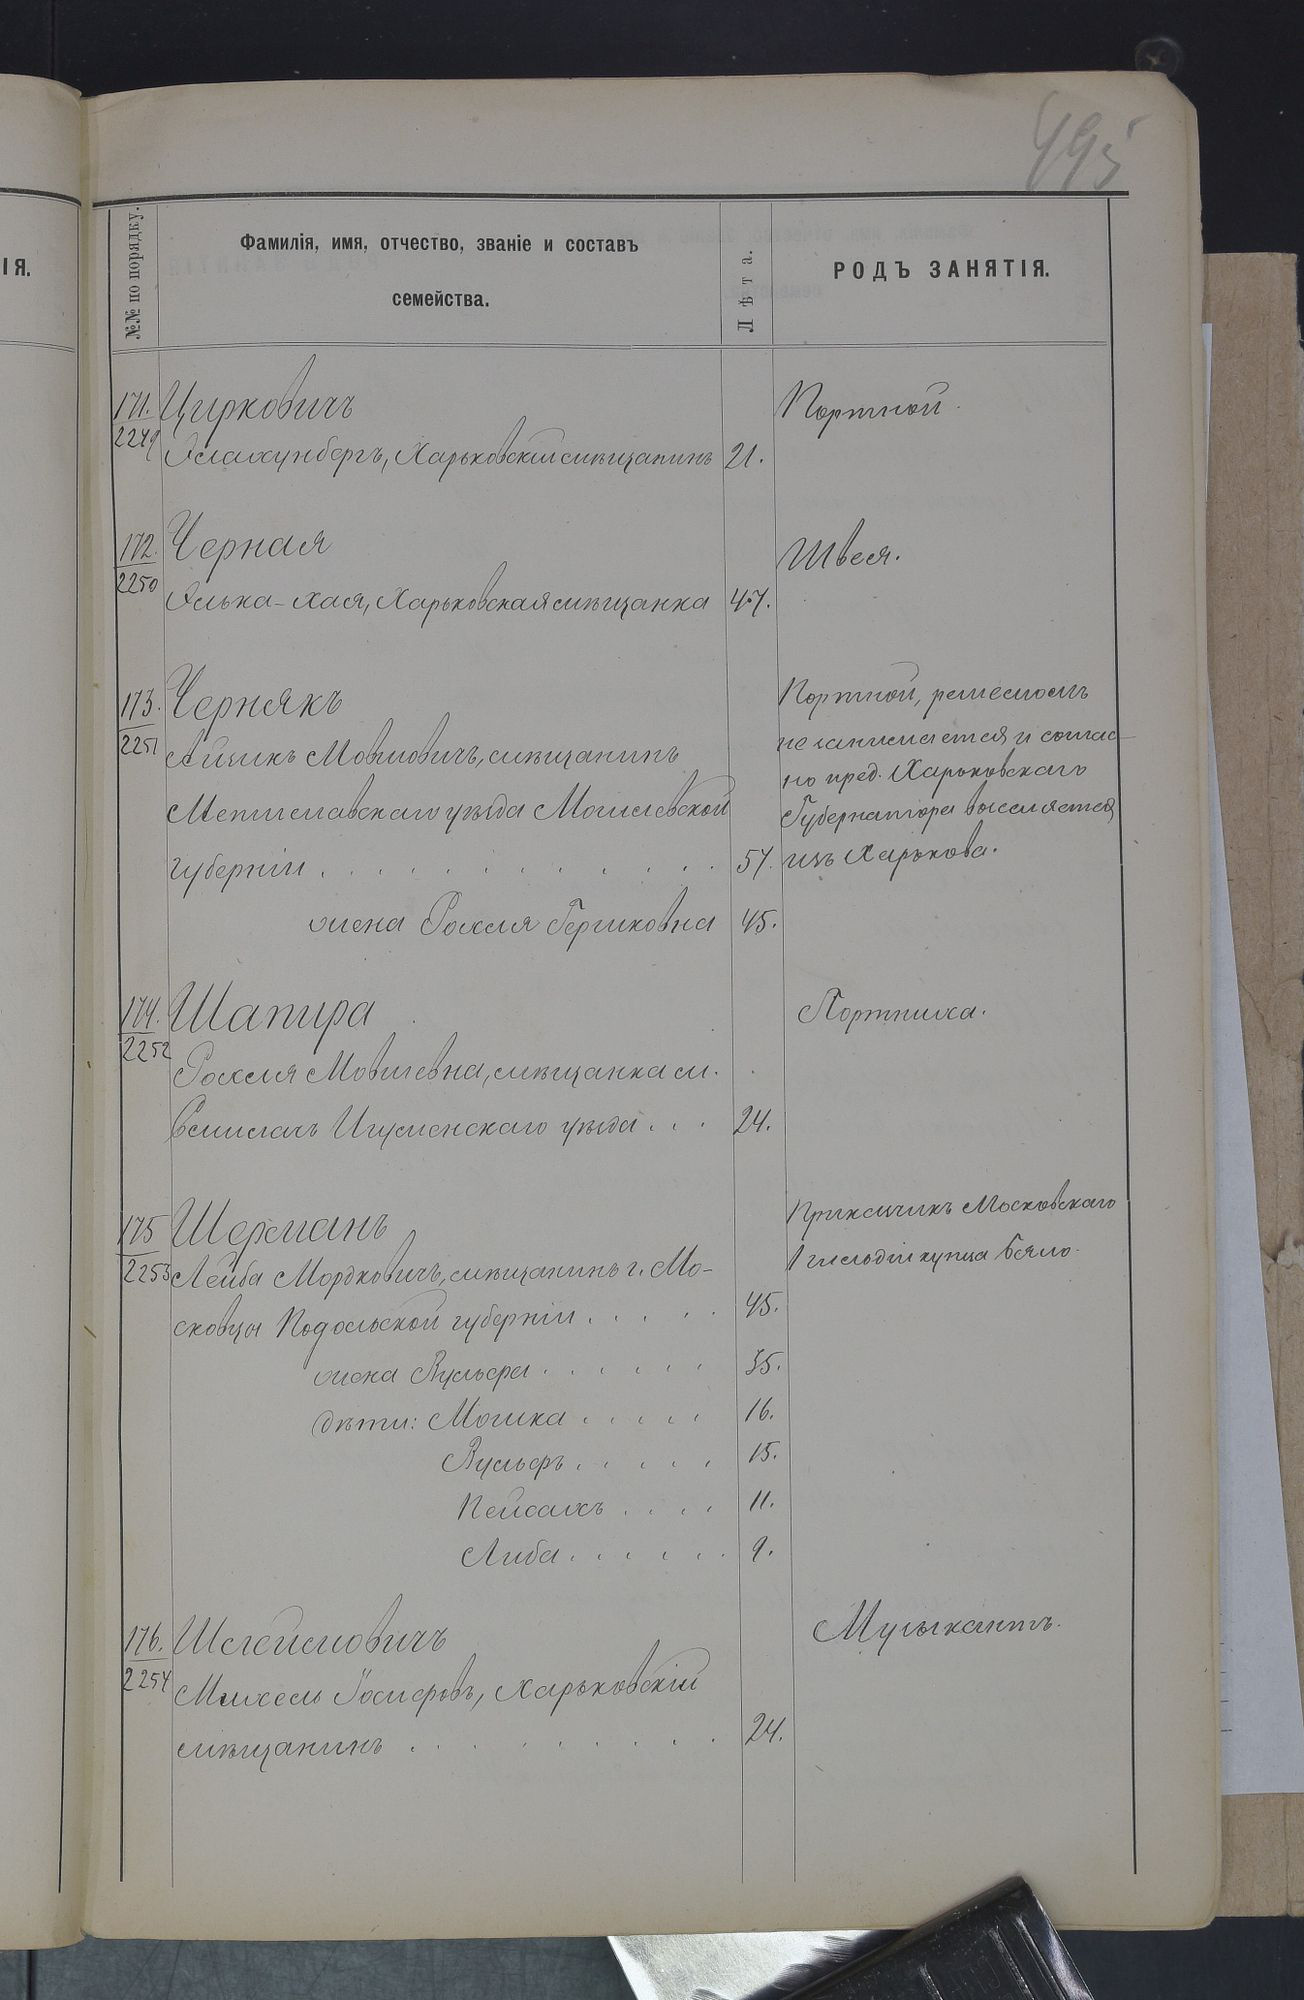 495
ІЯ.
№№ по порядку.
Фамилія, имя, отчество, званіе и составъ
семейства.
Лѣта.
РОДЪ ЗАНЯТІЯ.
171. Цирковичъ Портной.
2249 Харьковскій мѣщанинъ 21.
172. Черная Швея.
2250 Элька-Хая, Харьковская мѣщанка 47.
173. Чернякъ Портной, ремесломъ
2251 Айзикъ Мовшовичъ, мѣщанинъ не занимается и соглас-
Мстиславскаго уѣзда Могилевской но пред. Харьковскаго
Губернатора выселяется
губерніи . . . . . . . . . . 57. изъ Харькова.
жена Рохля Гершковна 45.
174. Шапира Портниха.
2252 Рохля Мовшевна, мѣщанка м.
Игуменскаго уѣзда . . . 24.
175 Шерманъ Прикащикъ Московскаго
2253 Лейба Мордковичъ, мѣщанинъ г. Мо- 1 гильдіи купца
сковцы Подольской губерніи . . . . . 45.
жена . . . . . . 35.
дѣти: Мошка . . . . . 16.
Вульфъ . . . . . 15.
Пейсахъ . . . . 11.
Либа . . . . . . 9.
176. Шлеймовичъ Музыкантъ.
2254 Михель Іосифовъ, Харьковскій
мѣщанинъ . . . . . . . . . 24.